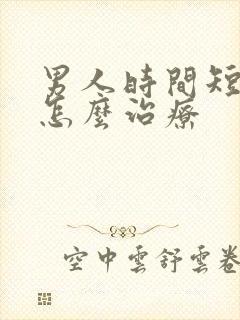 男人時間短
怎麼治療
空中雲舒雲卷